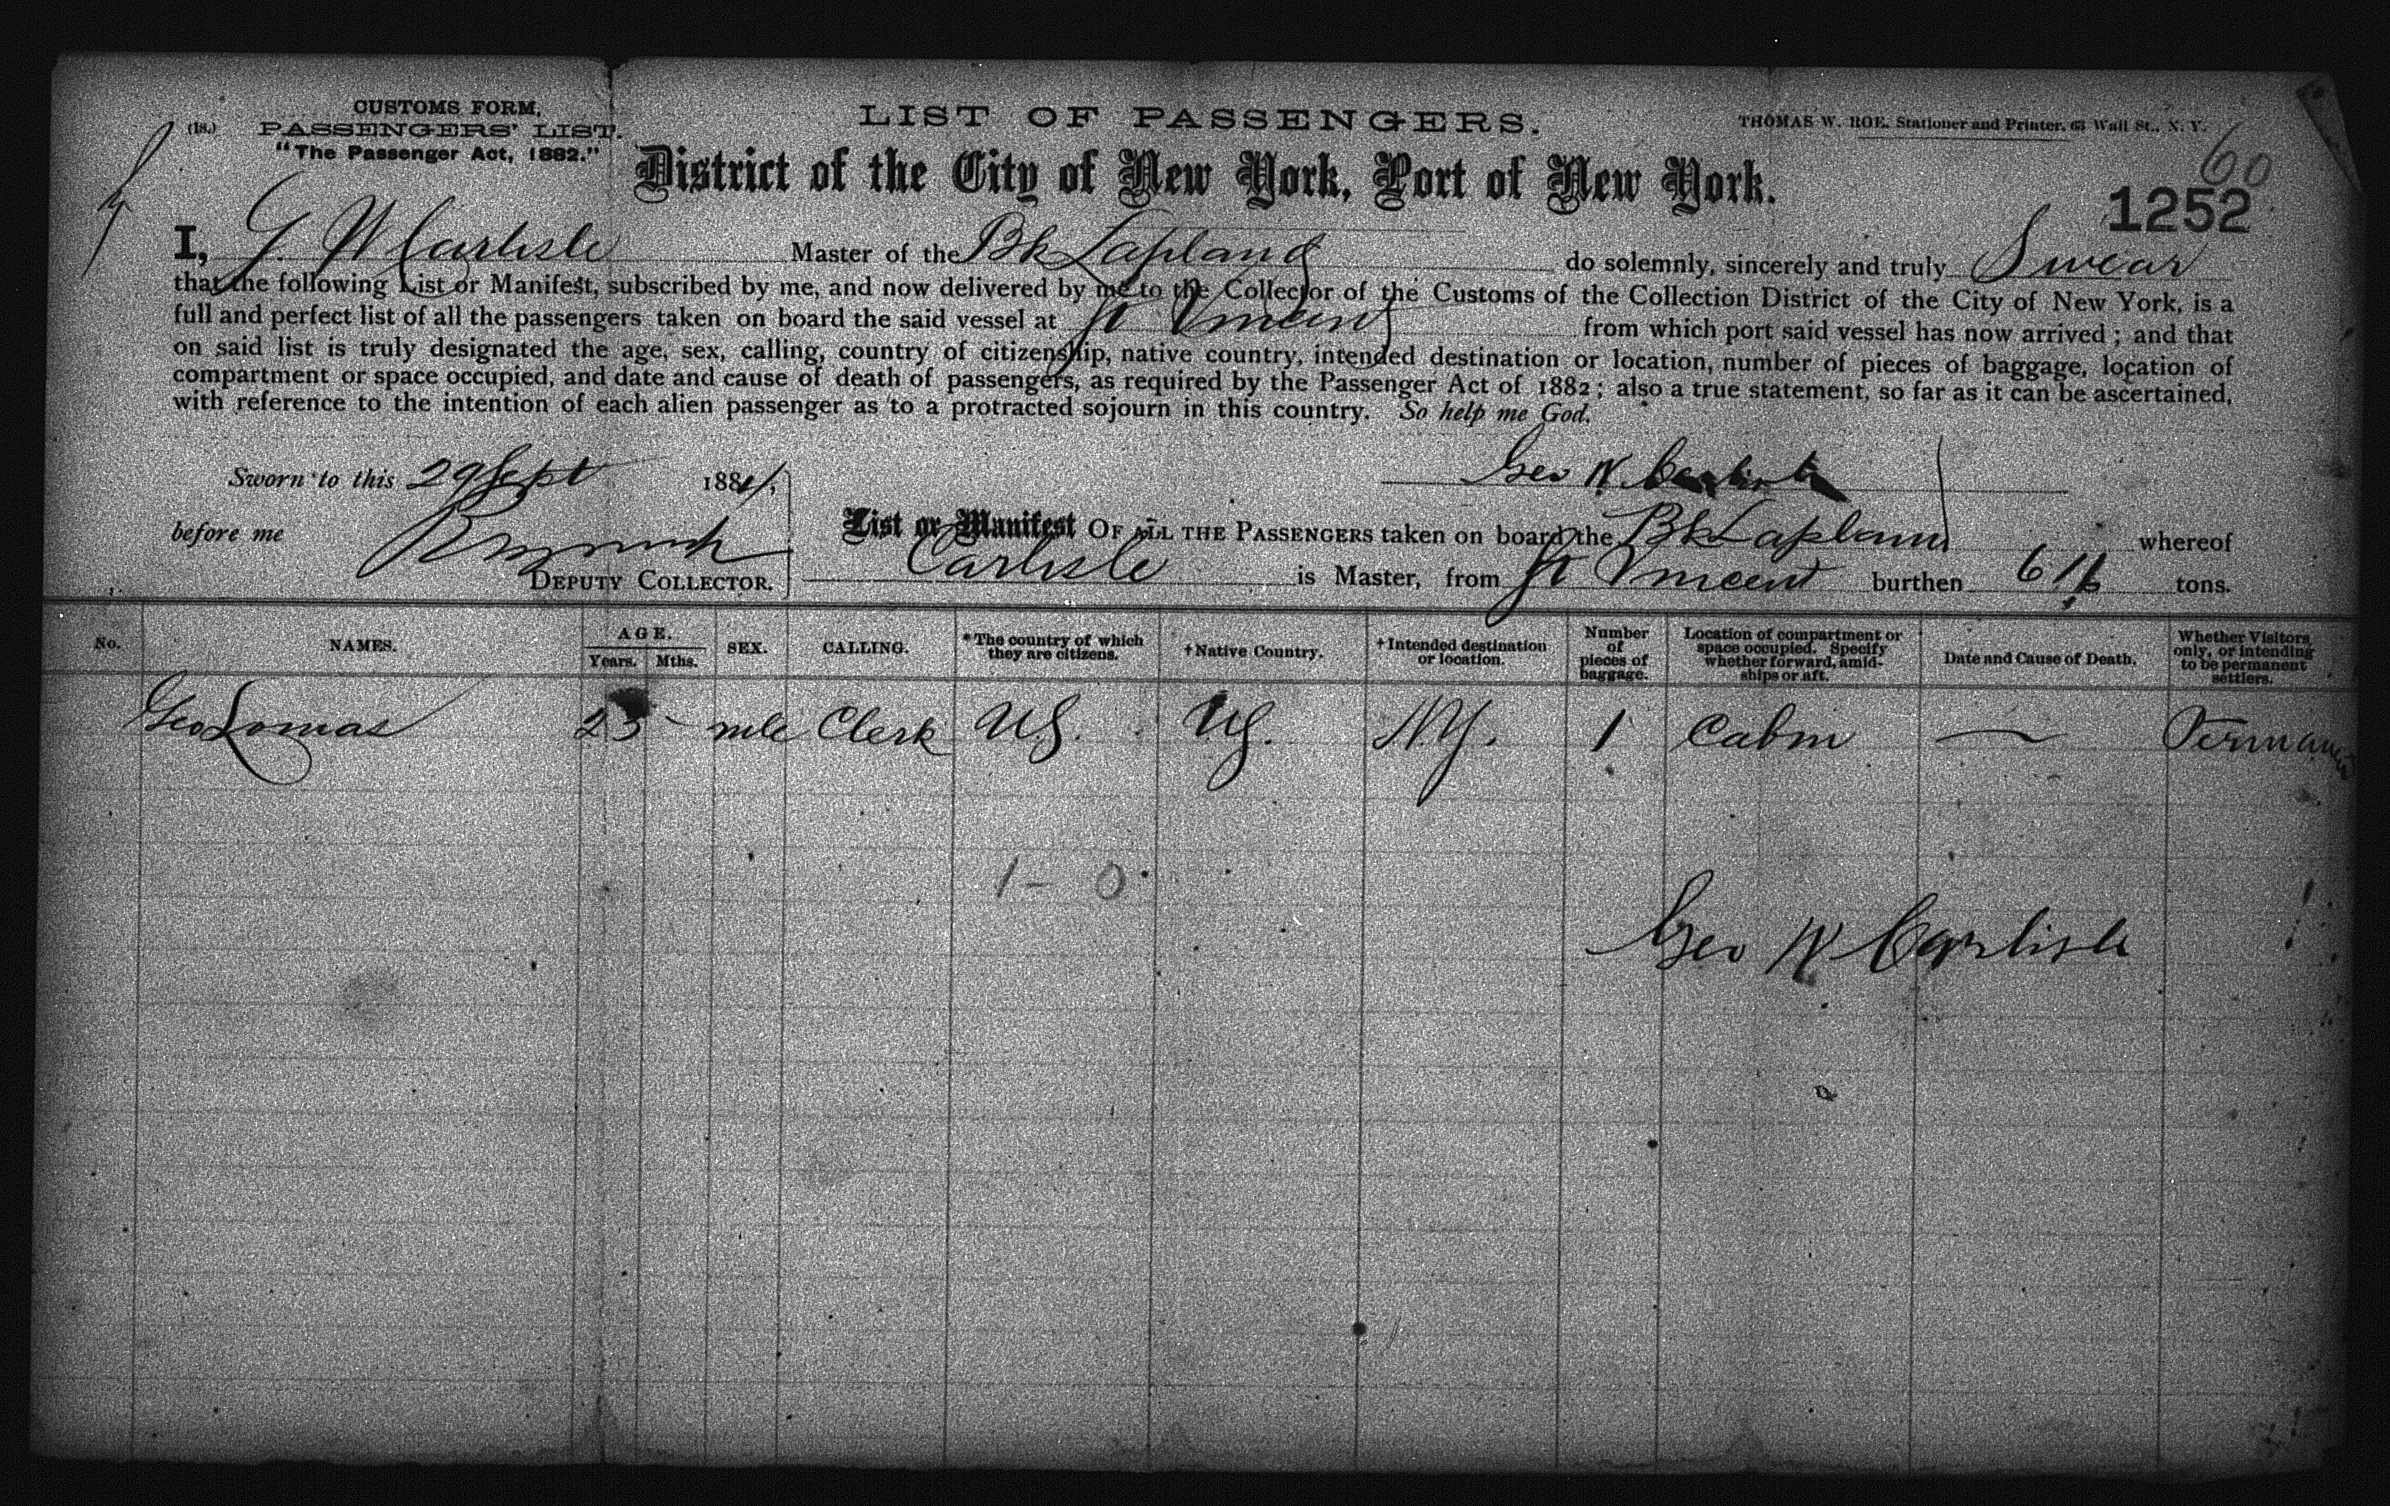 CUSTOMS FORM,
(18.) PASSENGERS' LIST.
"The Passenger Act, 1882."
LIST OF PASSENGERS.
THOMAS W. ROE. Stationer and Printer, 63 Wall St., N. Y.
60
1252
District of the City of New York, Port of New York.
I, G. W Carlisle Master of the Bk Lapland do solemnly, sincerely and truly Swear
that the following List or Manifest, subscribed by me, and now delivered by me to the Collector of the Customs of the Collection District of the City of New York, is a
full and perfect list of all the passengers taken on board the said vessel at St Vincent from which port said vessel has now arrived; and that
on said list is truly designated the age, sex, calling, country of citizenship, native country, intended destination or location, number of pieces of baggage, location of
compartment or space occupied, and date and cause of death of passengers, as required by the Passenger Act of 1882; also a true statement, so far as it can be ascertained,
with reference to the intention of each alien passenger as to a protracted sojourn in this country. So help me God.
Sworn to this 29 Sept 1884, Geo W. Carlisle
before me
DEPUTY COLLECTOR.
List or Manifest OF ALL THE PASSENGERS taken on board the Bk Lapland whereof
Carlisle is Master, from St Vincent burthen tons.
No. NAMES. AGE. Years. Mths. SEX. CALLING. *The country of which they are citizens. †Native Country. †Intended destination or location. Number of pieces of baggage. Location of compartment or space occupied. Specify whether forward, amidships or aft. Date and Cause of Death. Whether Visitors only, or intending to be permanent settlers.
Geo Lomas 23 - mle Clerk U.S. U.S. N.Y. 1 Cabin — Permanent
1 - 0
Geo W Carlisle